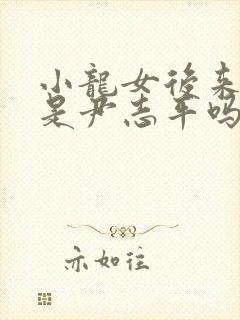 小龍女後来
是尹志平吗
亦如往